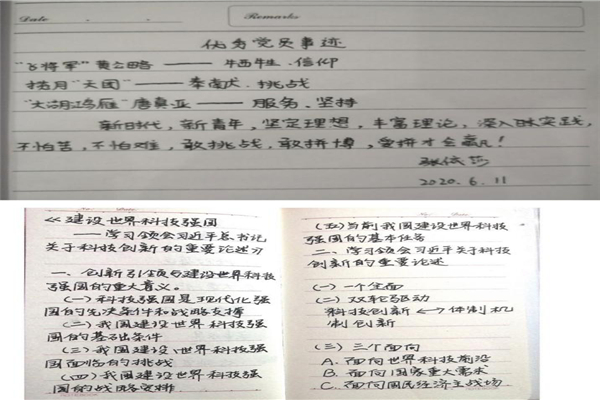 Date
Remarks
优秀党员事迹
"飞将军"黄公略 —— 牺牲、信仰
捞月"天团" —— 秦南犬、挑战
"太湖鸿雁"唐真亚 —— 服务、坚持
新时代，新青年，坚定理想，丰富理论，深入实践，
不怕苦，不怕难，敢挑战，敢拼博，爱拼才会赢！
2020.6.11
《建设世界科技强国
——学习领会习近平总书记
关于科技创新的重要论述》
一、创新引领与建设世界科技
强国的重大意义。
(一)科技强国是现代化强
国的先决条件和战略支撑
(二)我国建设世界科技强
国的基础条件
(三)我国建设世界科技强
国面临的挑战
(四)我国建设世界科技强
国的战略安排
(五)当前我国建设世界科技
强国的基本任务
二、学习领会习近平关于科技
创新的重要论述
(一)一个全面
(二)双轮驱动
科技创新 ←→ 体制机
制创新
(三)三个面向
A. 面向世界科技前沿
B. 面向国家重大需求
C. 面向国民经济主战场